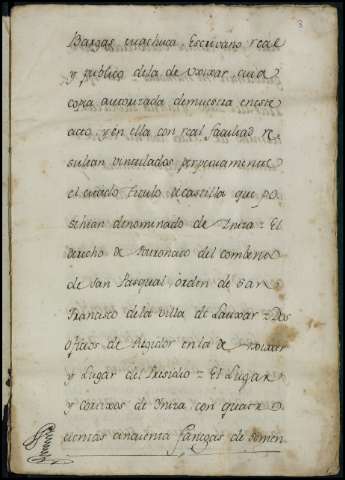 3
Bargas Machuca, Escrivano real
y publico de la de Uxixar, cuia
copia autorizada demuestra en este
acto, y en ella con real facultad re
sultan vinculados perpetuamente
el citado titulo de castilla que po
sehian denominado de Iniza = El
derecho de Patronato del combento
de San Pasqual, orden de San
Francisco de la villa de Lauxar = Dos
oficios de Regidor en la de Uxixar
y Lugar del Presidio = El Lugar
y cortixos de Iniza con quatro
cientas cinquenta fanegas de semen